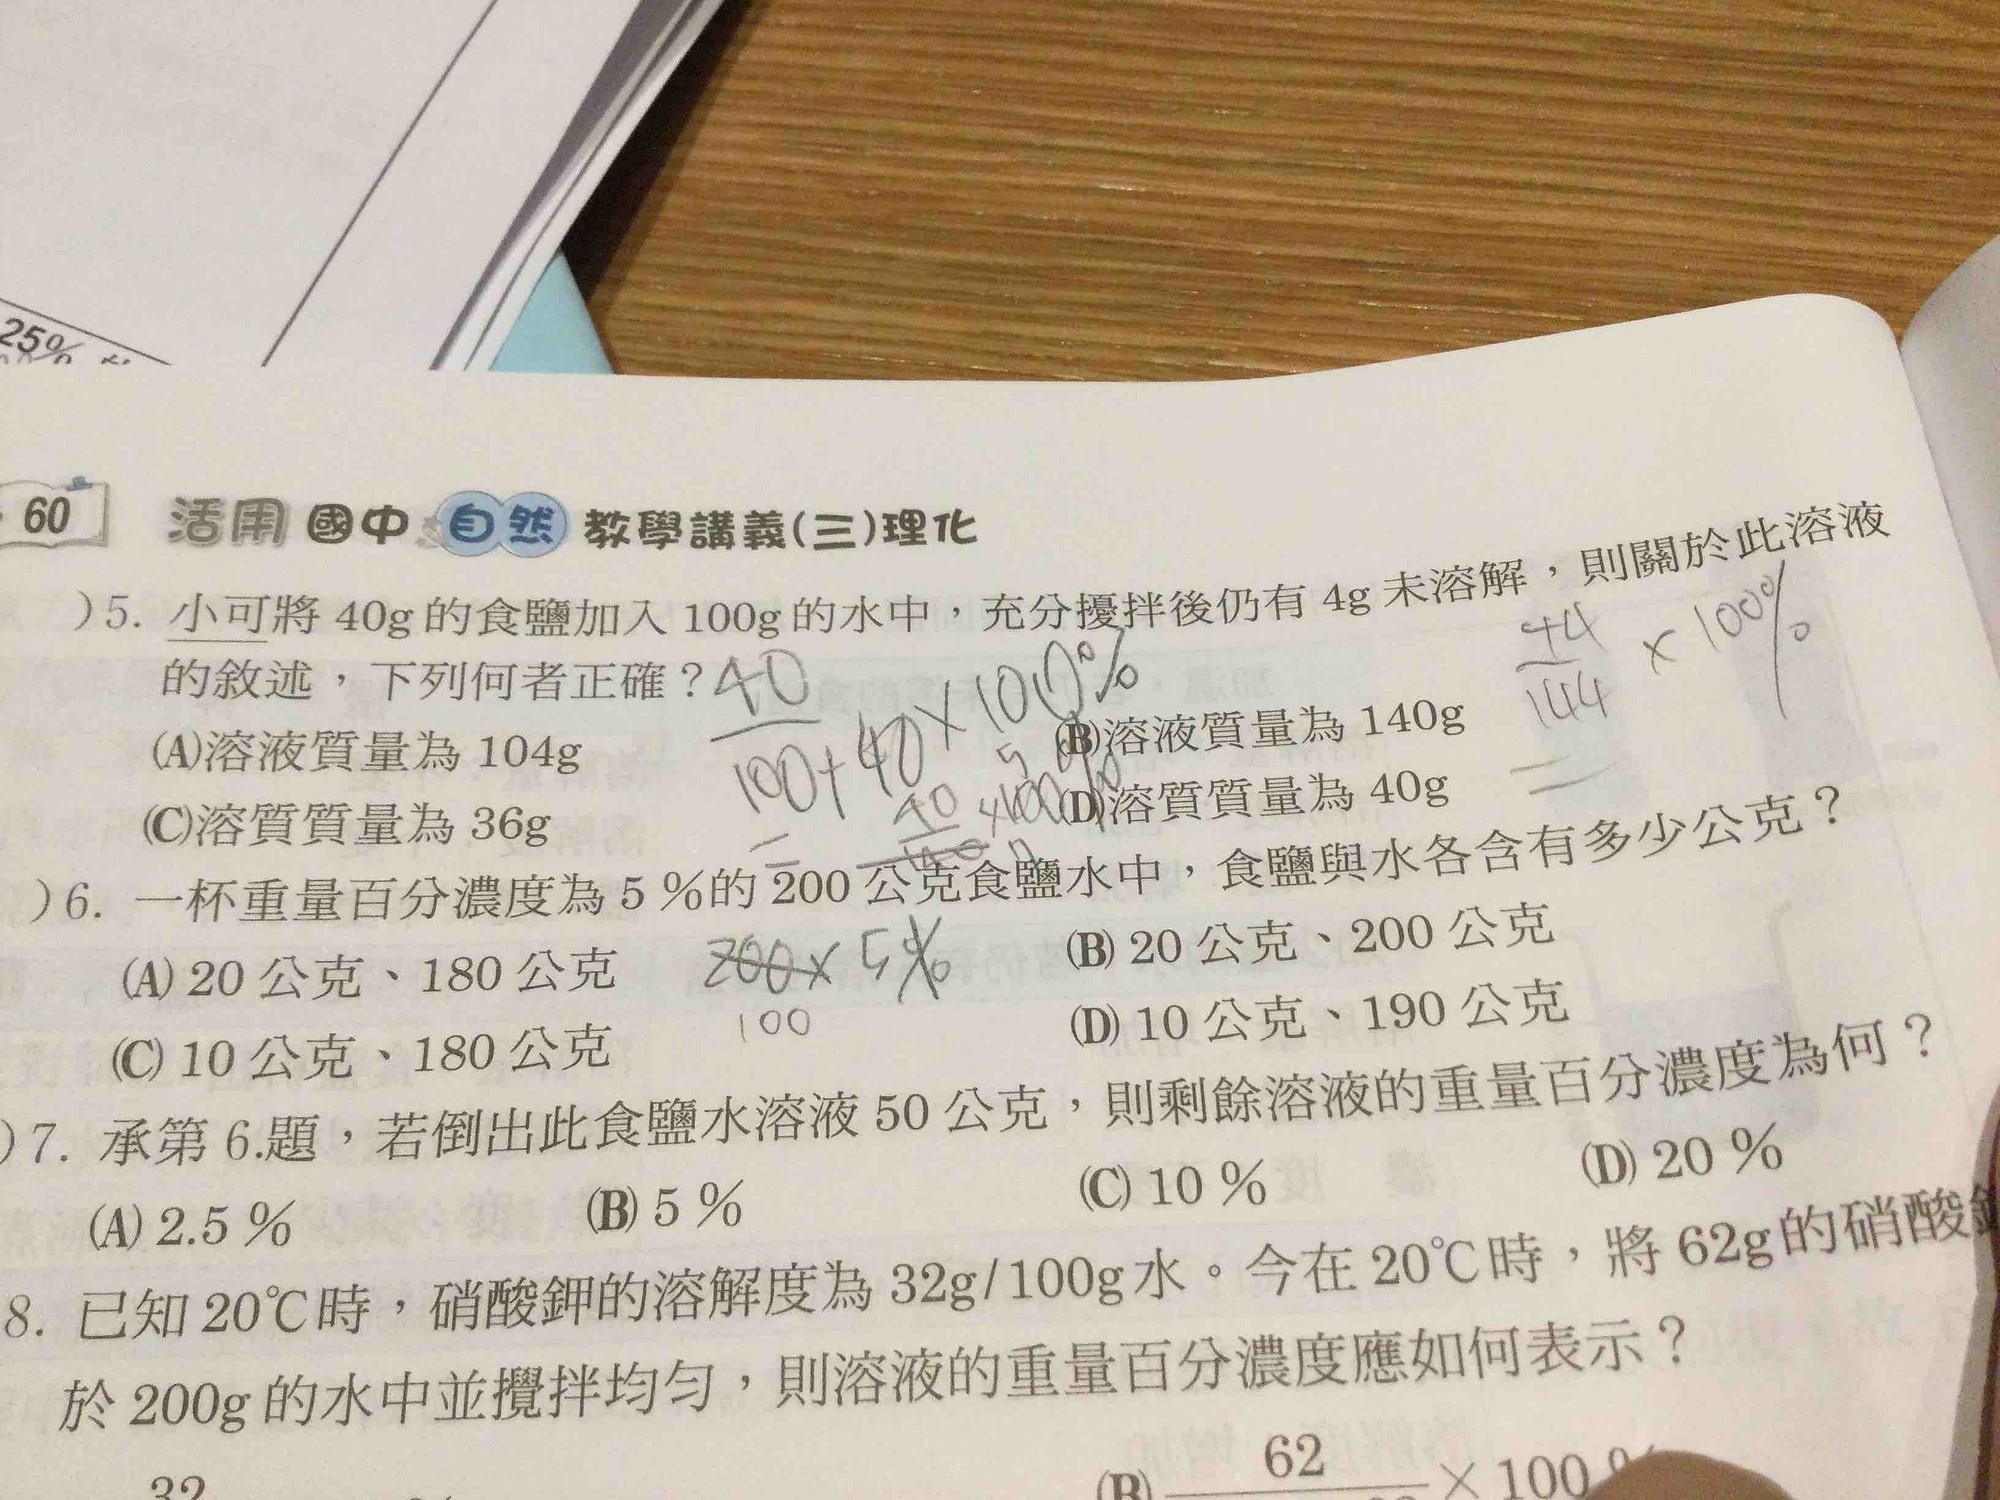 25%
60 活用 國中 自然 教學講義(三)理化
)5. 小可將 40g 的食鹽加入 100g 的水中，充分擾拌後仍有 4g 未溶解，則關於此溶液
的敘述，下列何者正確？
40
100+40 × 100%
44
144 × 100%
=
(A)溶液質量為 104g (B)溶液質量為 140g
(C)溶質質量為 36g (D)溶質質量為 40g
)6. 一杯重量百分濃度為 5 %的 200 公克食鹽水中，食鹽與水各含有多少公克？
(A) 20 公克、180 公克 (B) 20 公克、200 公克
200 × 5%
100
(C) 10 公克、180 公克 (D) 10 公克、190 公克
)7. 承第 6.題，若倒出此食鹽水溶液 50 公克，則剩餘溶液的重量百分濃度為何？
(A) 2.5 % (B) 5 % (C) 10 % (D) 20 %
8. 已知 20℃時，硝酸鉀的溶解度為 32g/100g 水。今在 20℃時，將 62g 的硝酸
於 200g 的水中並攪拌均勻，則溶液的重量百分濃度應如何表示？
32
(B) 62 × 100